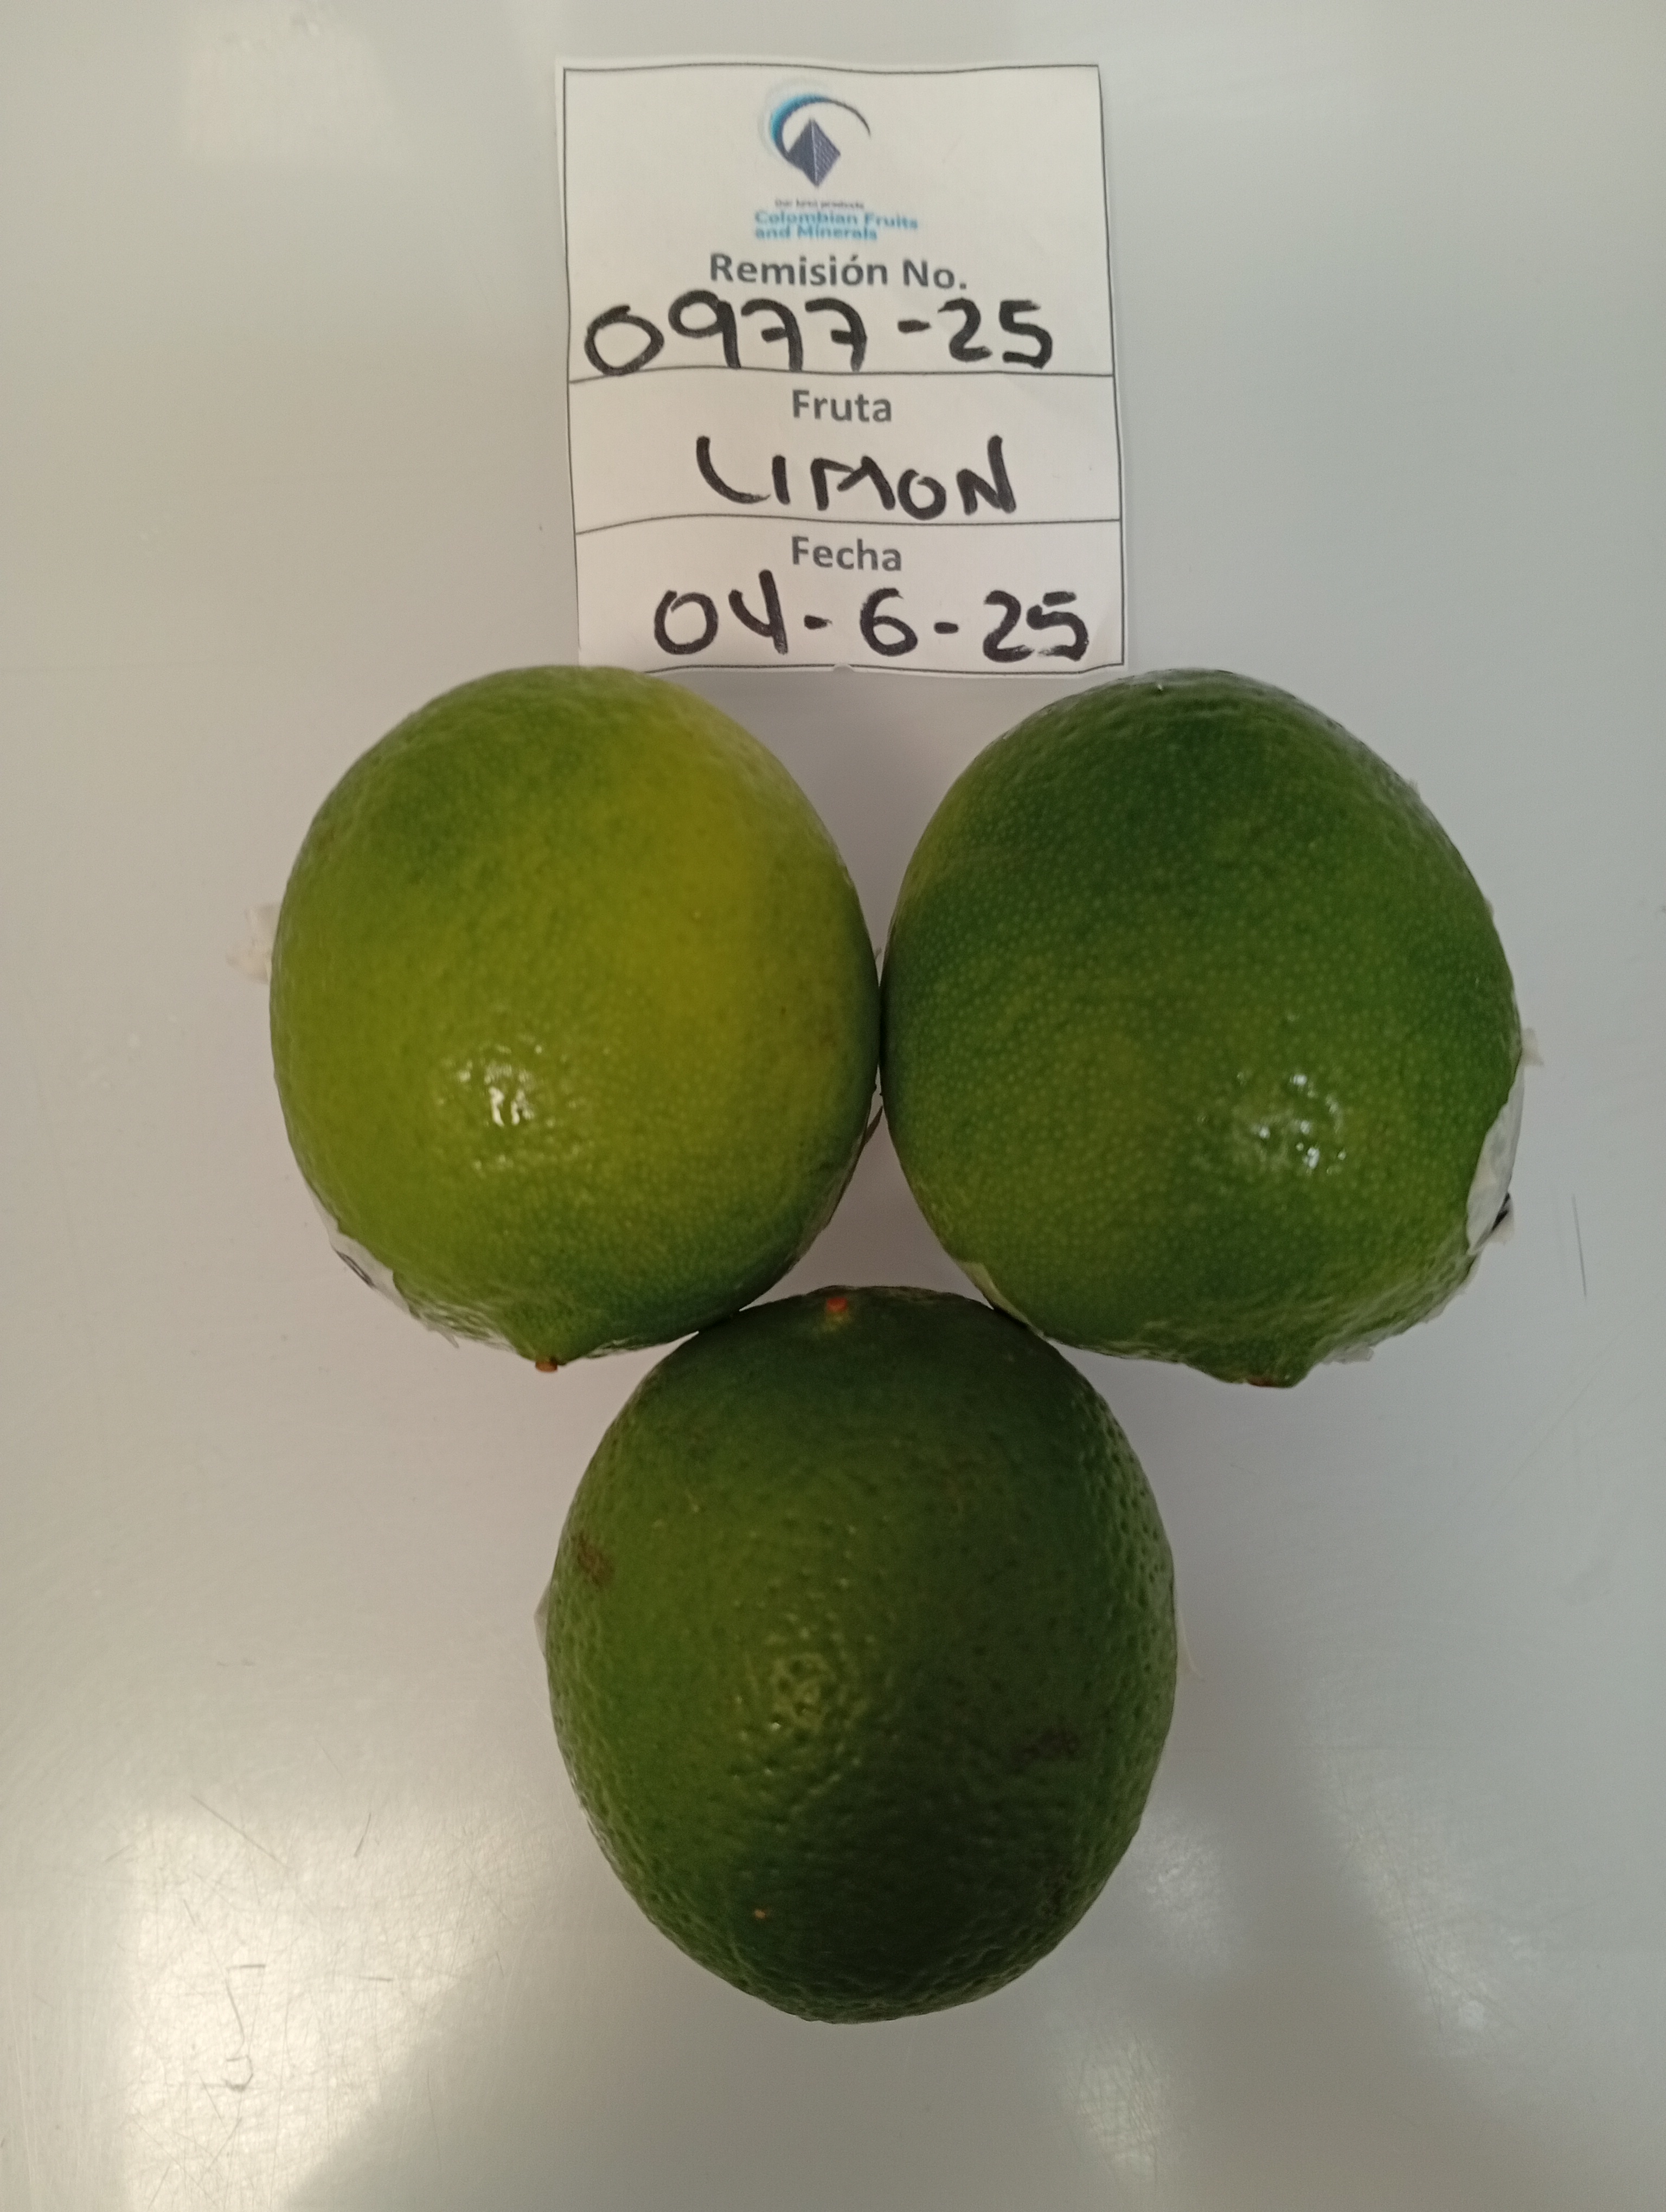 Our best products
Colombian Fruits
and Minerals
Remisión No.
0977-25
Fruta
LIMON
Fecha
04-6-25